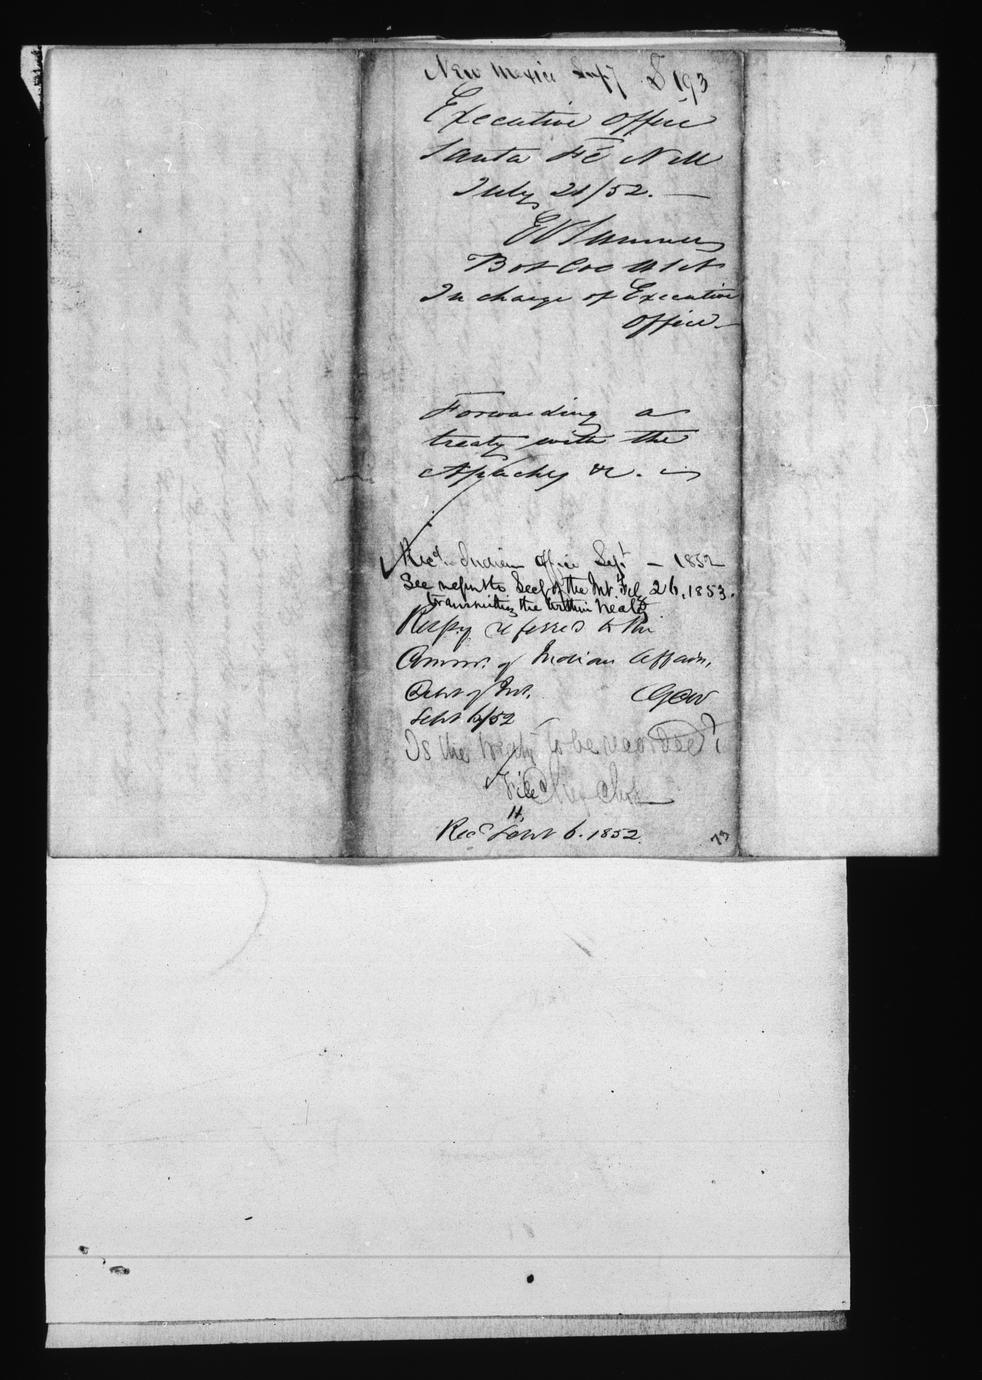 New Mexico Supy S 193
Executive Office
Santa Fé N M
July 21/52. —
E V Sumner
Bvt Col U S A
In charge of Executive
Office. —
Forwarding a
treaty with the
Apaches &c.
Recd Indian Office Sept — 1852
See report to Secy of the Int. Feby 26, 1853.
transmitting the within treaty
Respy referred to the
Commr. of Indian Affairs,
Dept of Int.
Sept 6/52
Is the treaty to be recorded?
File
Recd Sept 6. 1852.
73